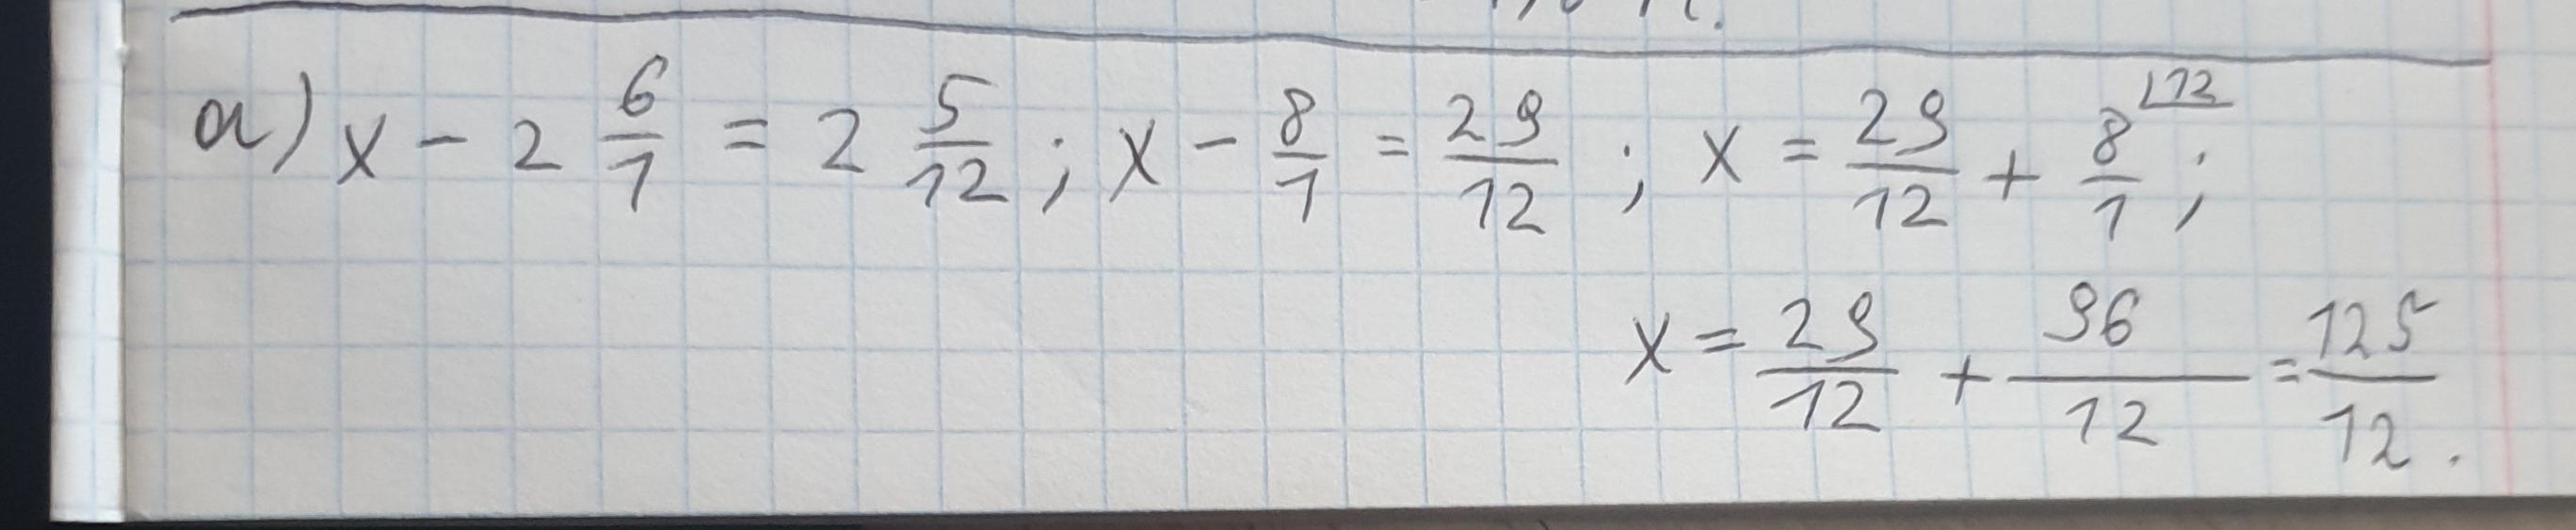 а) x - 2 6/1 = 2 5/12 ; x - 8/1 = 29/12 ; x = 29/12 + 8/1 ⌊12 ;
x = 29/12 + 96/12 = 125/12 .